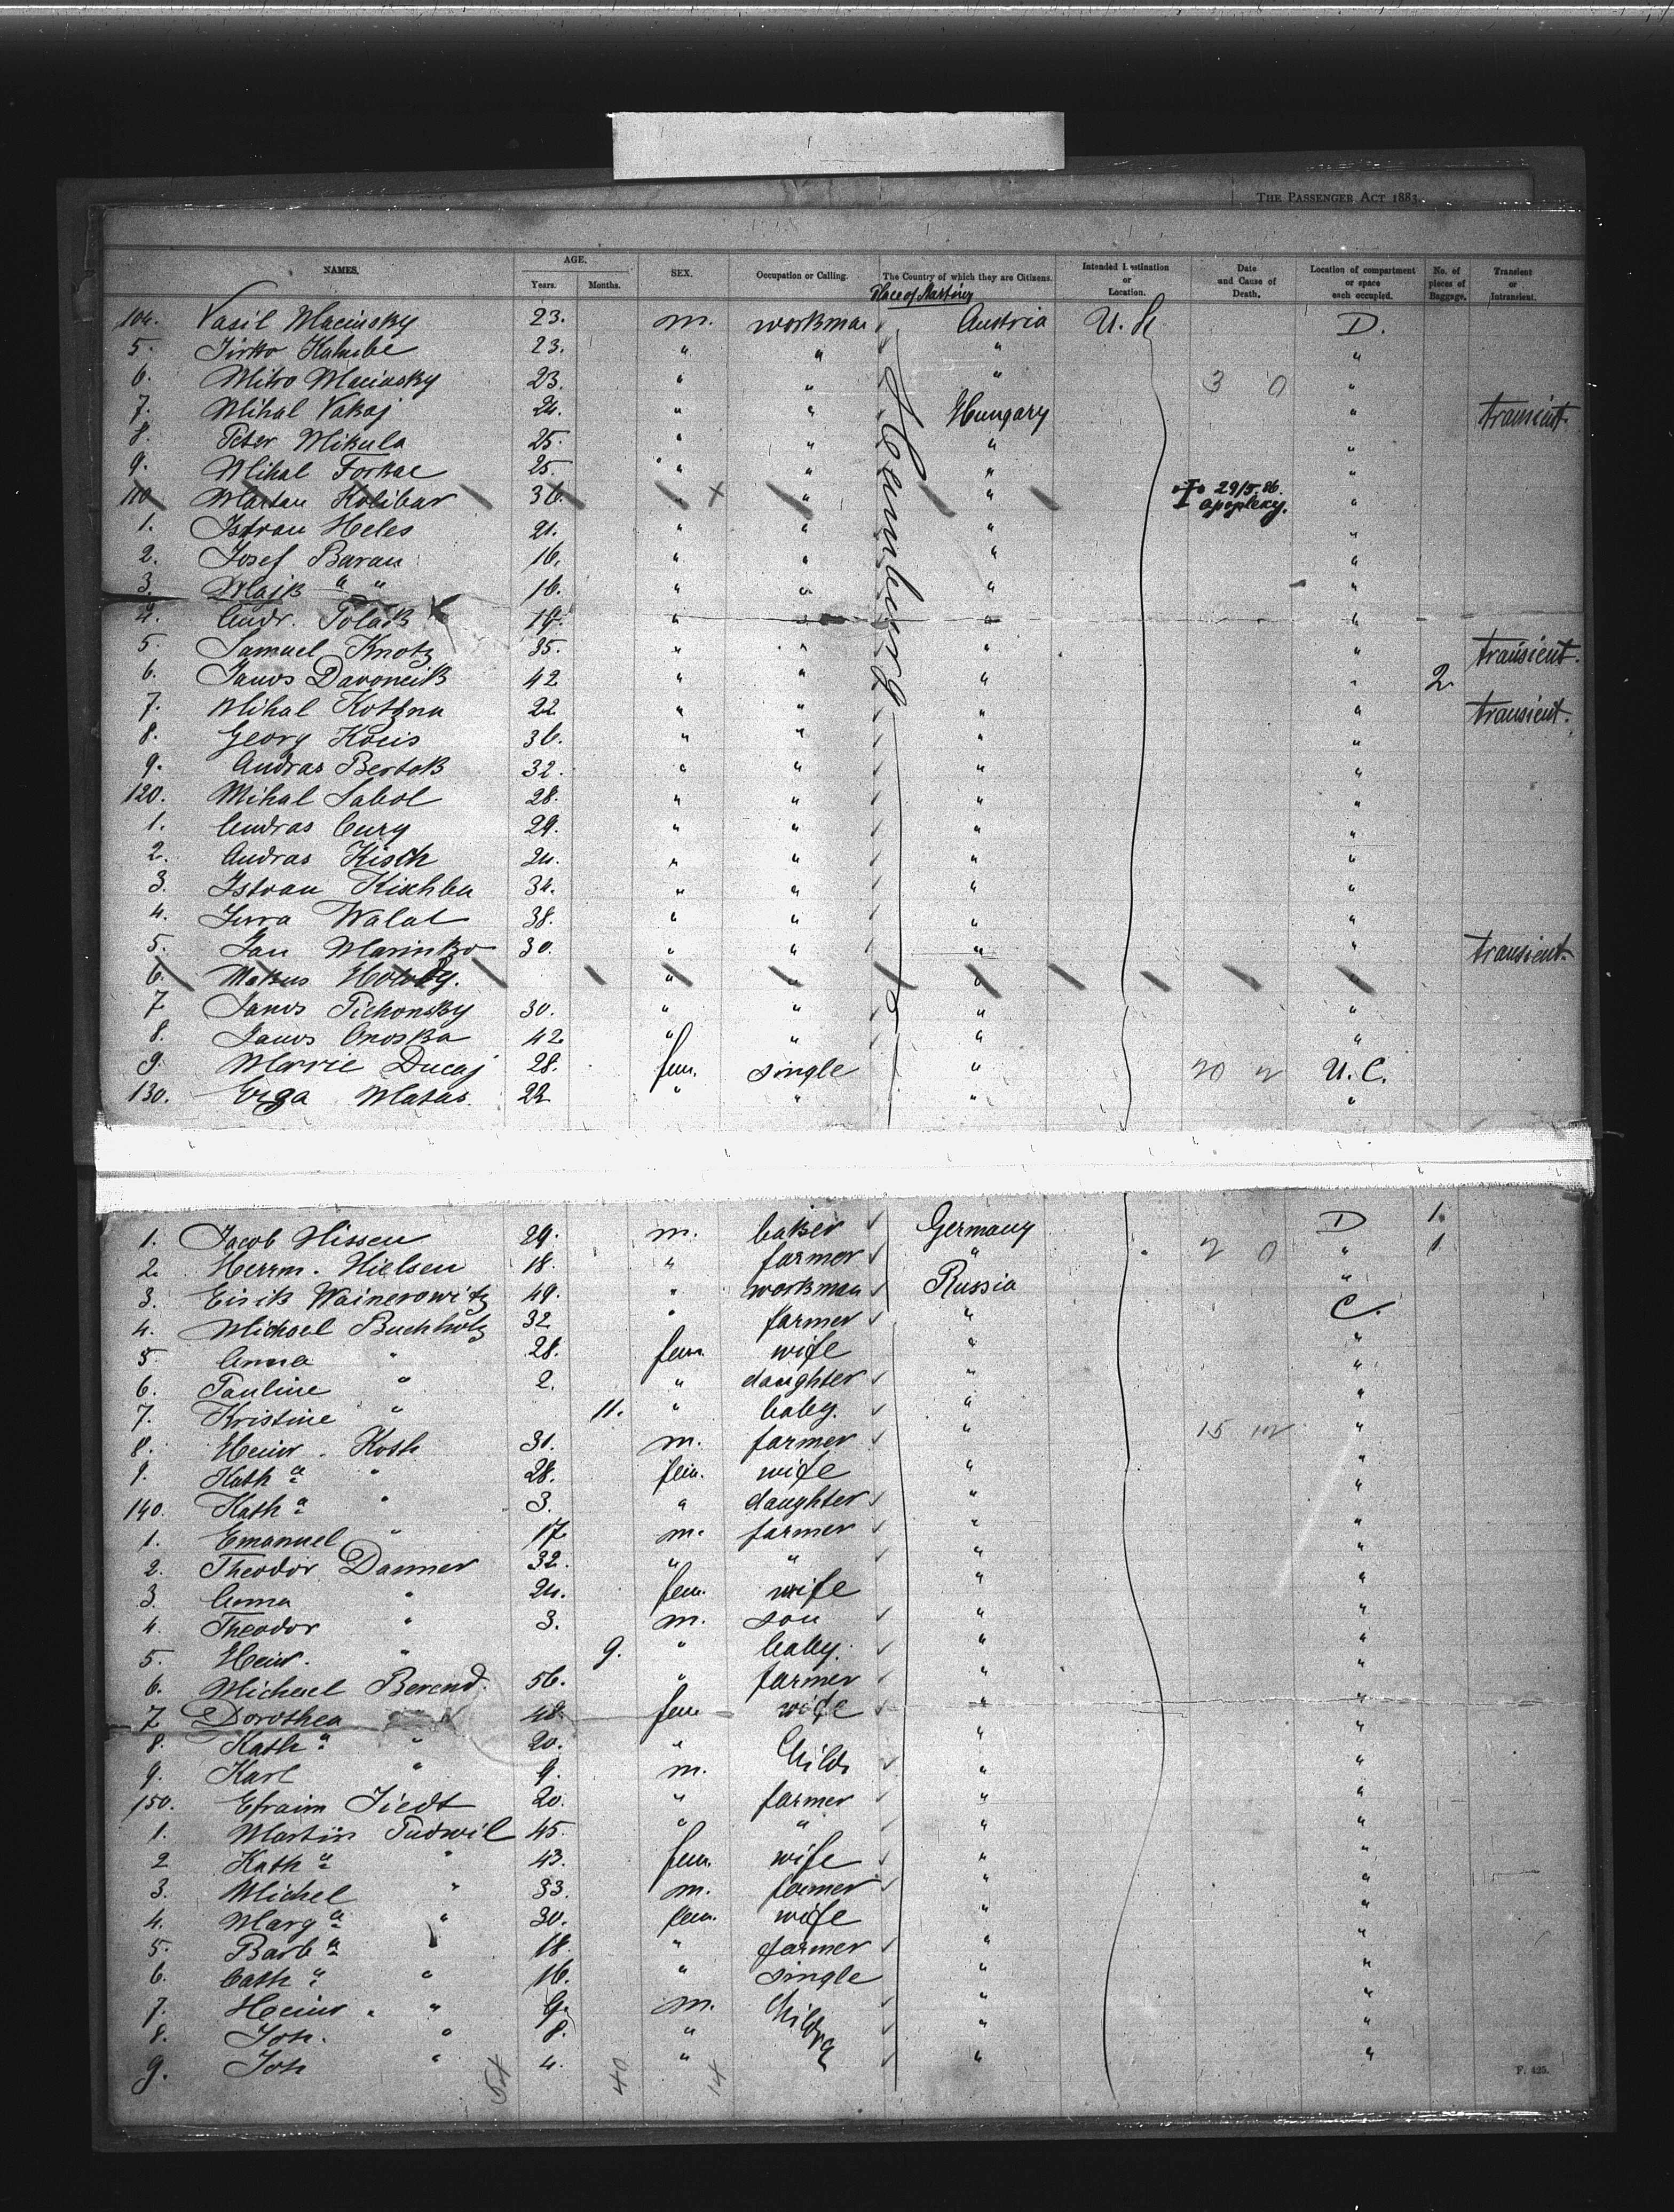 THE PASSENGER ACT 1883.
NAMES. AGE. SEX. Occupation or Calling. The Country of which they are Citizens. Intended Destination or Location. Date and Cause of Death. Location of compartment or space each occupied. No. of pieces of Baggage. Transient or Intransient.
Years. Months.
Place of Starting
Hamburg
104. Vasil Macinsky 23. m. workman Austria U.S. D.
5. 23. " " " "
6. Mitro Macinsky 23. " " " 3 0 "
7. Mihal Vakaj 24. " " Hungary " transient.
8. Peter Mikula 25. " " " "
9. Mihal Forkac 25. " " " "
110 Martan Kolibar 36. " " " 29/5.86. apoplexy. "
1. Istvan Heles 21. " " " "
2. Josef Baran 16. " " " "
3. Majk " " 16. " " " "
4. Andr. Polak 19. " " " "
5. Samuel Knotz 35. " " " " transient.
6. Janos Davoncik 42 " " " " 2
7. Mihal 22 " " " " transient.
8. Georg Kocis 36. " " " "
9. Andras Bertok 32. " " " "
120. Mihal Sabol 28. " " " "
1. Andras Cury 29. " " " "
2. Andras Kisch 24. " " " "
3. Istvan 34. " " " "
4. Jurra Walal 38. " " " "
5. Jan Marinko 30. " " " " transient.
6. " " " "
7 Janos Pichonsky 30. " " " "
8. Janos Onoska 42 " " " "
9. Marrie Ducaj 28. fem. single " 20 U.C.
130. Erga Matas 22 " " " "
1. Jacob Nissen 29. m. baker Germany D 1.
2. Herrm. Nielsen 18. " farmer " 2 0 " 1
3. Eisik Wainerowitz 49. " workman Russia "
4. Michael Buchholz 32 " farmer " C.
5. Anna " 28. fem. wife " "
6. Pauline " 2. " daughter " "
7. Kristine " 11. " baby. " "
8. Heinr. Kosh 31. m. farmer " 15 "
9. Kath a " 28. fem. wife " "
140. Kath a " 3. " daughter " "
1. Emanuel " 17 m. farmer " "
2. Theodor Danner 32. " " " "
3. Anna " 24. fem. wife " "
4. Theodor " 3. m. son " "
5. Heinr. " 9. " baby. " "
6. Michael Berend. 56. " farmer " "
7 Dorothea 48. fem. wife " "
8. Kath a " 20. " Childr " "
9. Karl " 9. m. " "
150. Efraim Tiedt 20. " farmer " "
1. Martin Pudwil 45. " " " "
2 Kath a " 43. fem. wife " "
3. Michel " 33. m. farmer " "
4. Marg a " 30. fem. wife " "
5. Barb a " 18. " farmer " "
6. Cath a " 16. " single " "
7. Heinr. " 9. m. Childrn " "
8. Joh. " 8. " " "
9. Joh " 4. " " "
54 40 14
F. 425.